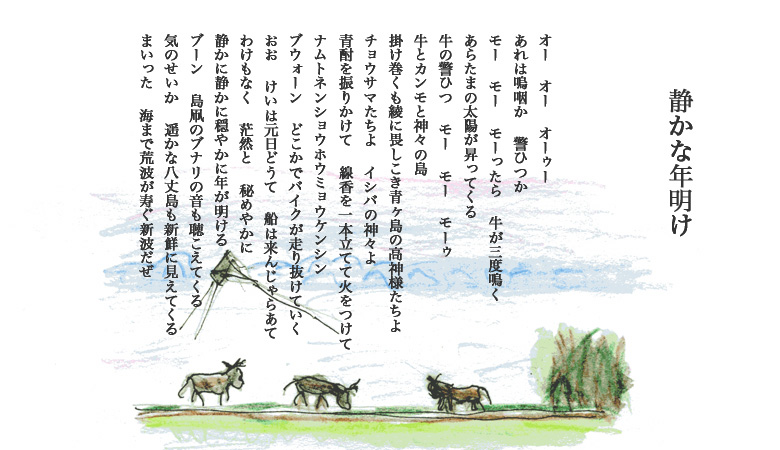 静かな年明け
オー　オー　オーゥー
あれは嗚咽か　警ひつか
モー　モー　モーったら　牛が三度鳴く
あらたまの太陽が昇ってくる
牛の警ひつ　モー　モー　モーゥ
牛とカンモと神々の島
掛け巻くも綾に畏しこき青ヶ島の高神様たちよ
チョウサマたちよ　イシバの神々よ
青酎を振りかけて　線香を一本立てて火をつけて
ナムトネンショウホウミョウケンシン
ブウォーン　どこかでバイクが走り抜けていく
おお　けいは元日どうて　船は来んじゃらあて
わけもなく　茫然と　秘めやかに
静かに静かに穏やかに年が明ける
ブーン　島凧のブナリの音も聴こえてくる
気のせいか　遥かな八丈島も新鮮に見えてくる
まいった　海まで荒波が寿ぐ新波だぜ